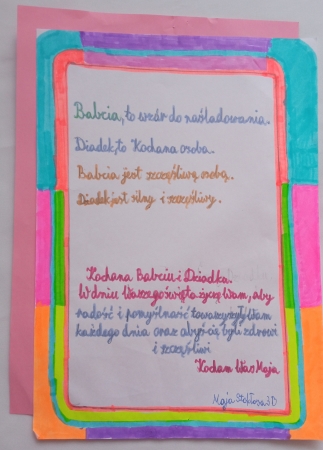 Babcia, to wzór do naśladowania.
Dziadek, to Kochana osoba.
Babcia jest szczęśliwą osobą.
Dziadek jest silny i szczęśliwy.
Kochana Babciu i Dziadku.
W dniu Waszego święta życzę Wam, aby
radość i pomyślność towarzyszyły Wam
każdego dnia oraz abyście byli zdrowi
i szczęśliwi
Kocham Was Maja
Maja